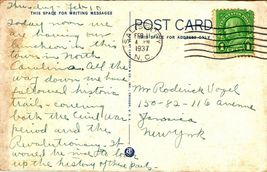 Thursday - Feb 18
THIS SPACE FOR WRITING MESSAGES
POST CARD
THIS SPACE FOR ADDRESS ONLY
FEB 18
1937
N.C.
Today noon we
are having our
luncheon in this
town in North
All the
way down we have
followed historic
trails - covering
both the Civil War
period and the
Revolutionary. It
would be nice to look
up the history of these parts.
Mr Roderick Vogel
150-42-116 Avenue
Jamaica
New York